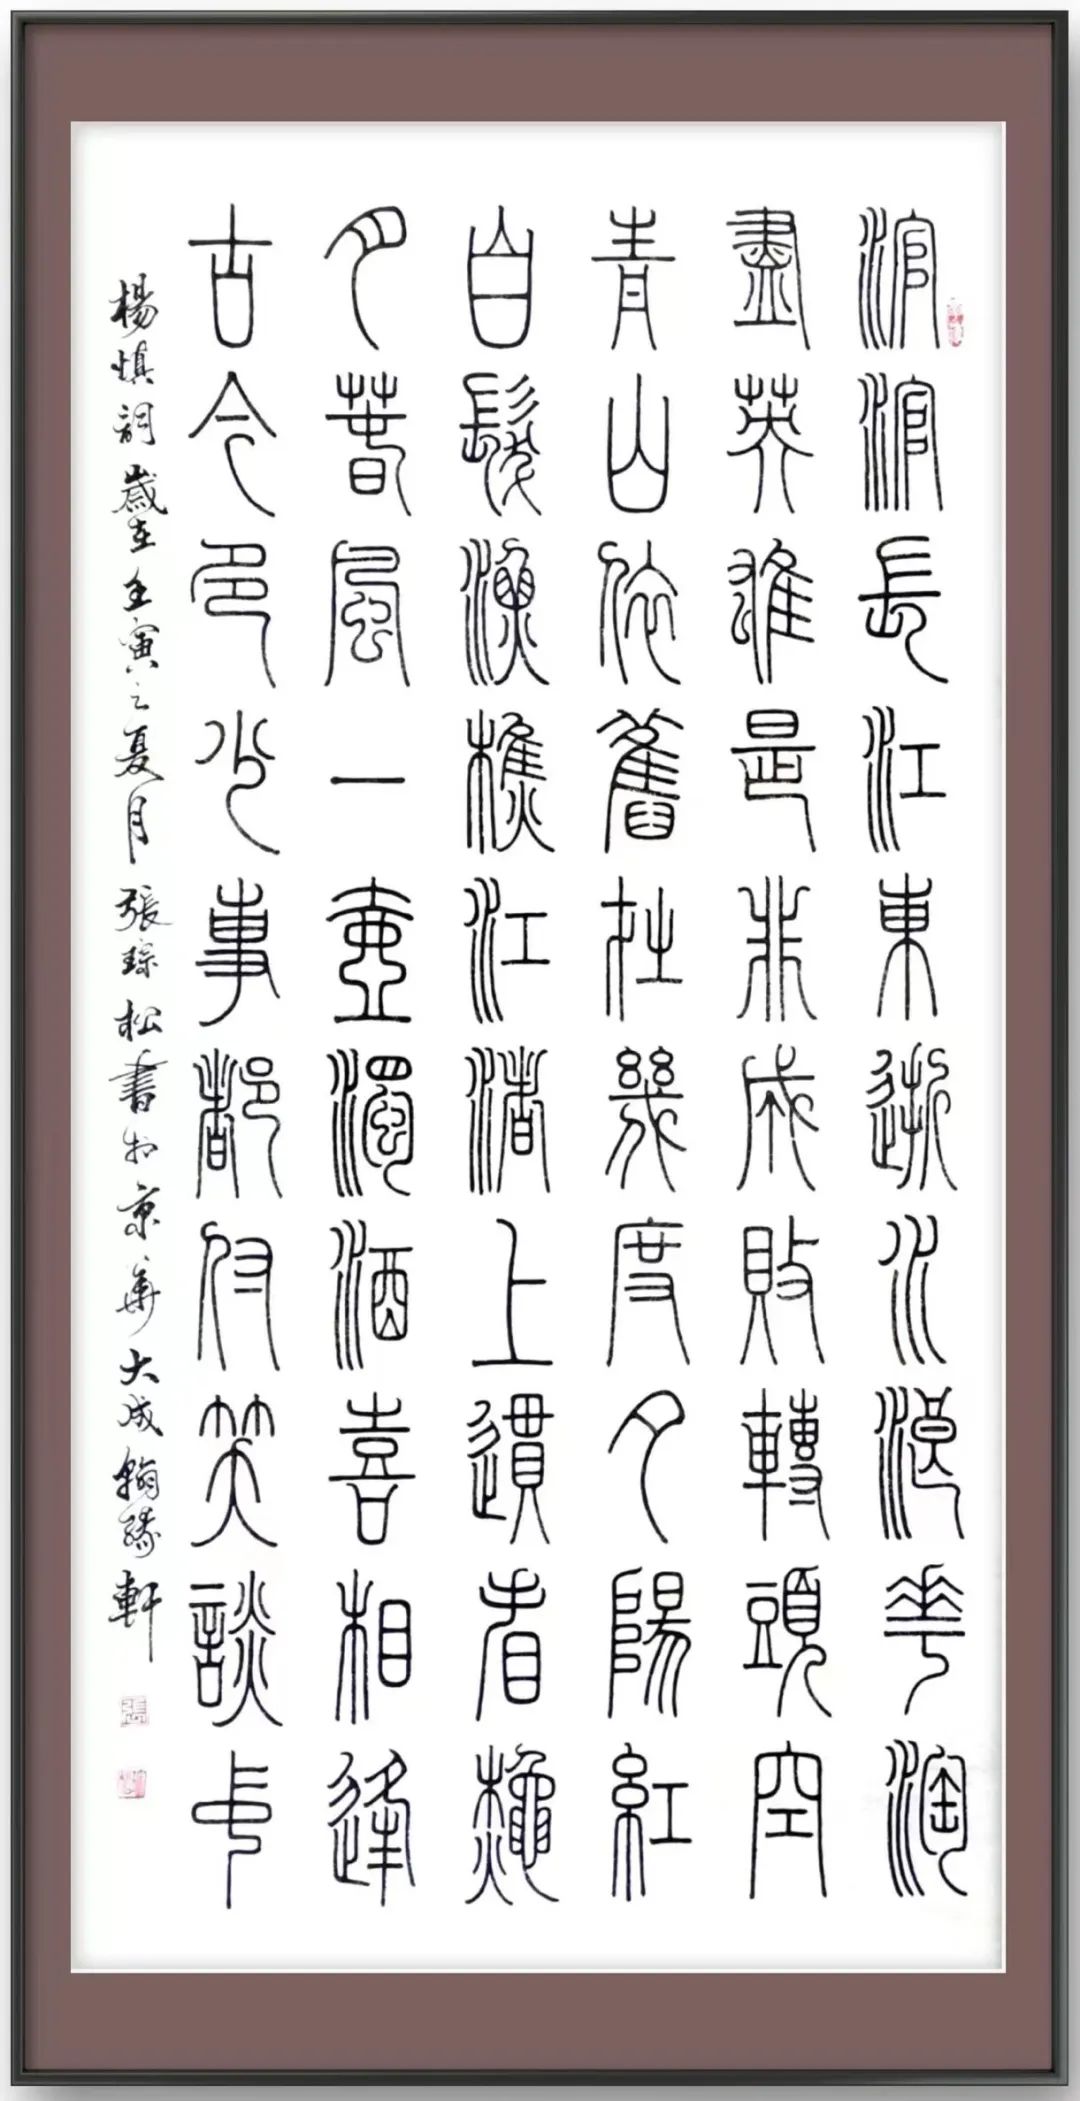 滾滾長江東逝水浪花淘
盡英雄是非成敗轉頭空
青山依舊在幾度夕陽紅
白髮漁樵江渚上慣看秋
月春風一壺濁酒喜相逢
古今多少事都付笑談中
楊慎詞歲在壬寅之夏月張琮松書於京華大成翰緣軒